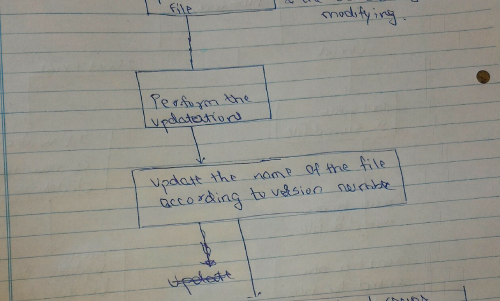 file
modifying.
Perform the
updatation
update the name of the file
according to version number